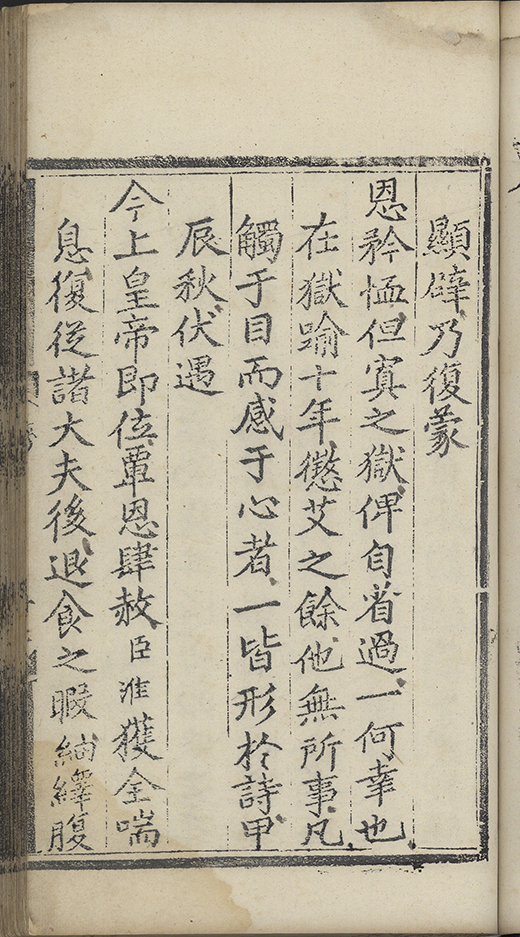 顯辟乃復蒙
恩矜恤但寘之獄俾自省過一何幸也
在獄踰十年懲艾之餘他無所事凡
觸于目而感于心者一皆形於詩甲
辰秋伏遇
今上皇帝即位覃恩肆赦臣淮獲全喘
息復從諸大夫後退食之暇紬繹腹